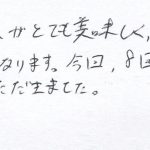 がとても美味しく,
なります。今回,8回
ただ生ました。